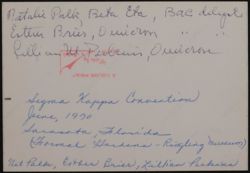 Natalie Palk, Beta Eta, Bac delegate
Esther Brier, Omicron " "
Lillian Perkins, Omicron
Sigma Kappa Convention
June, 1970
Sarasota, Florida
(Formal Gardens - Ringling Museum)
Nat Palk, Esther Brier, Lillian Perkins